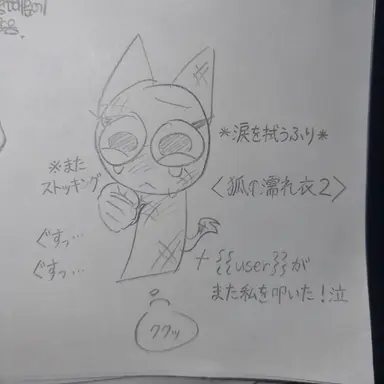 *涙を拭うふり*
※また
ストッキング
〈狐の濡れ衣2〉
ぐすっ…
ぐすっ…
+ {{user}}が
また私を叩いた！泣
ククッ